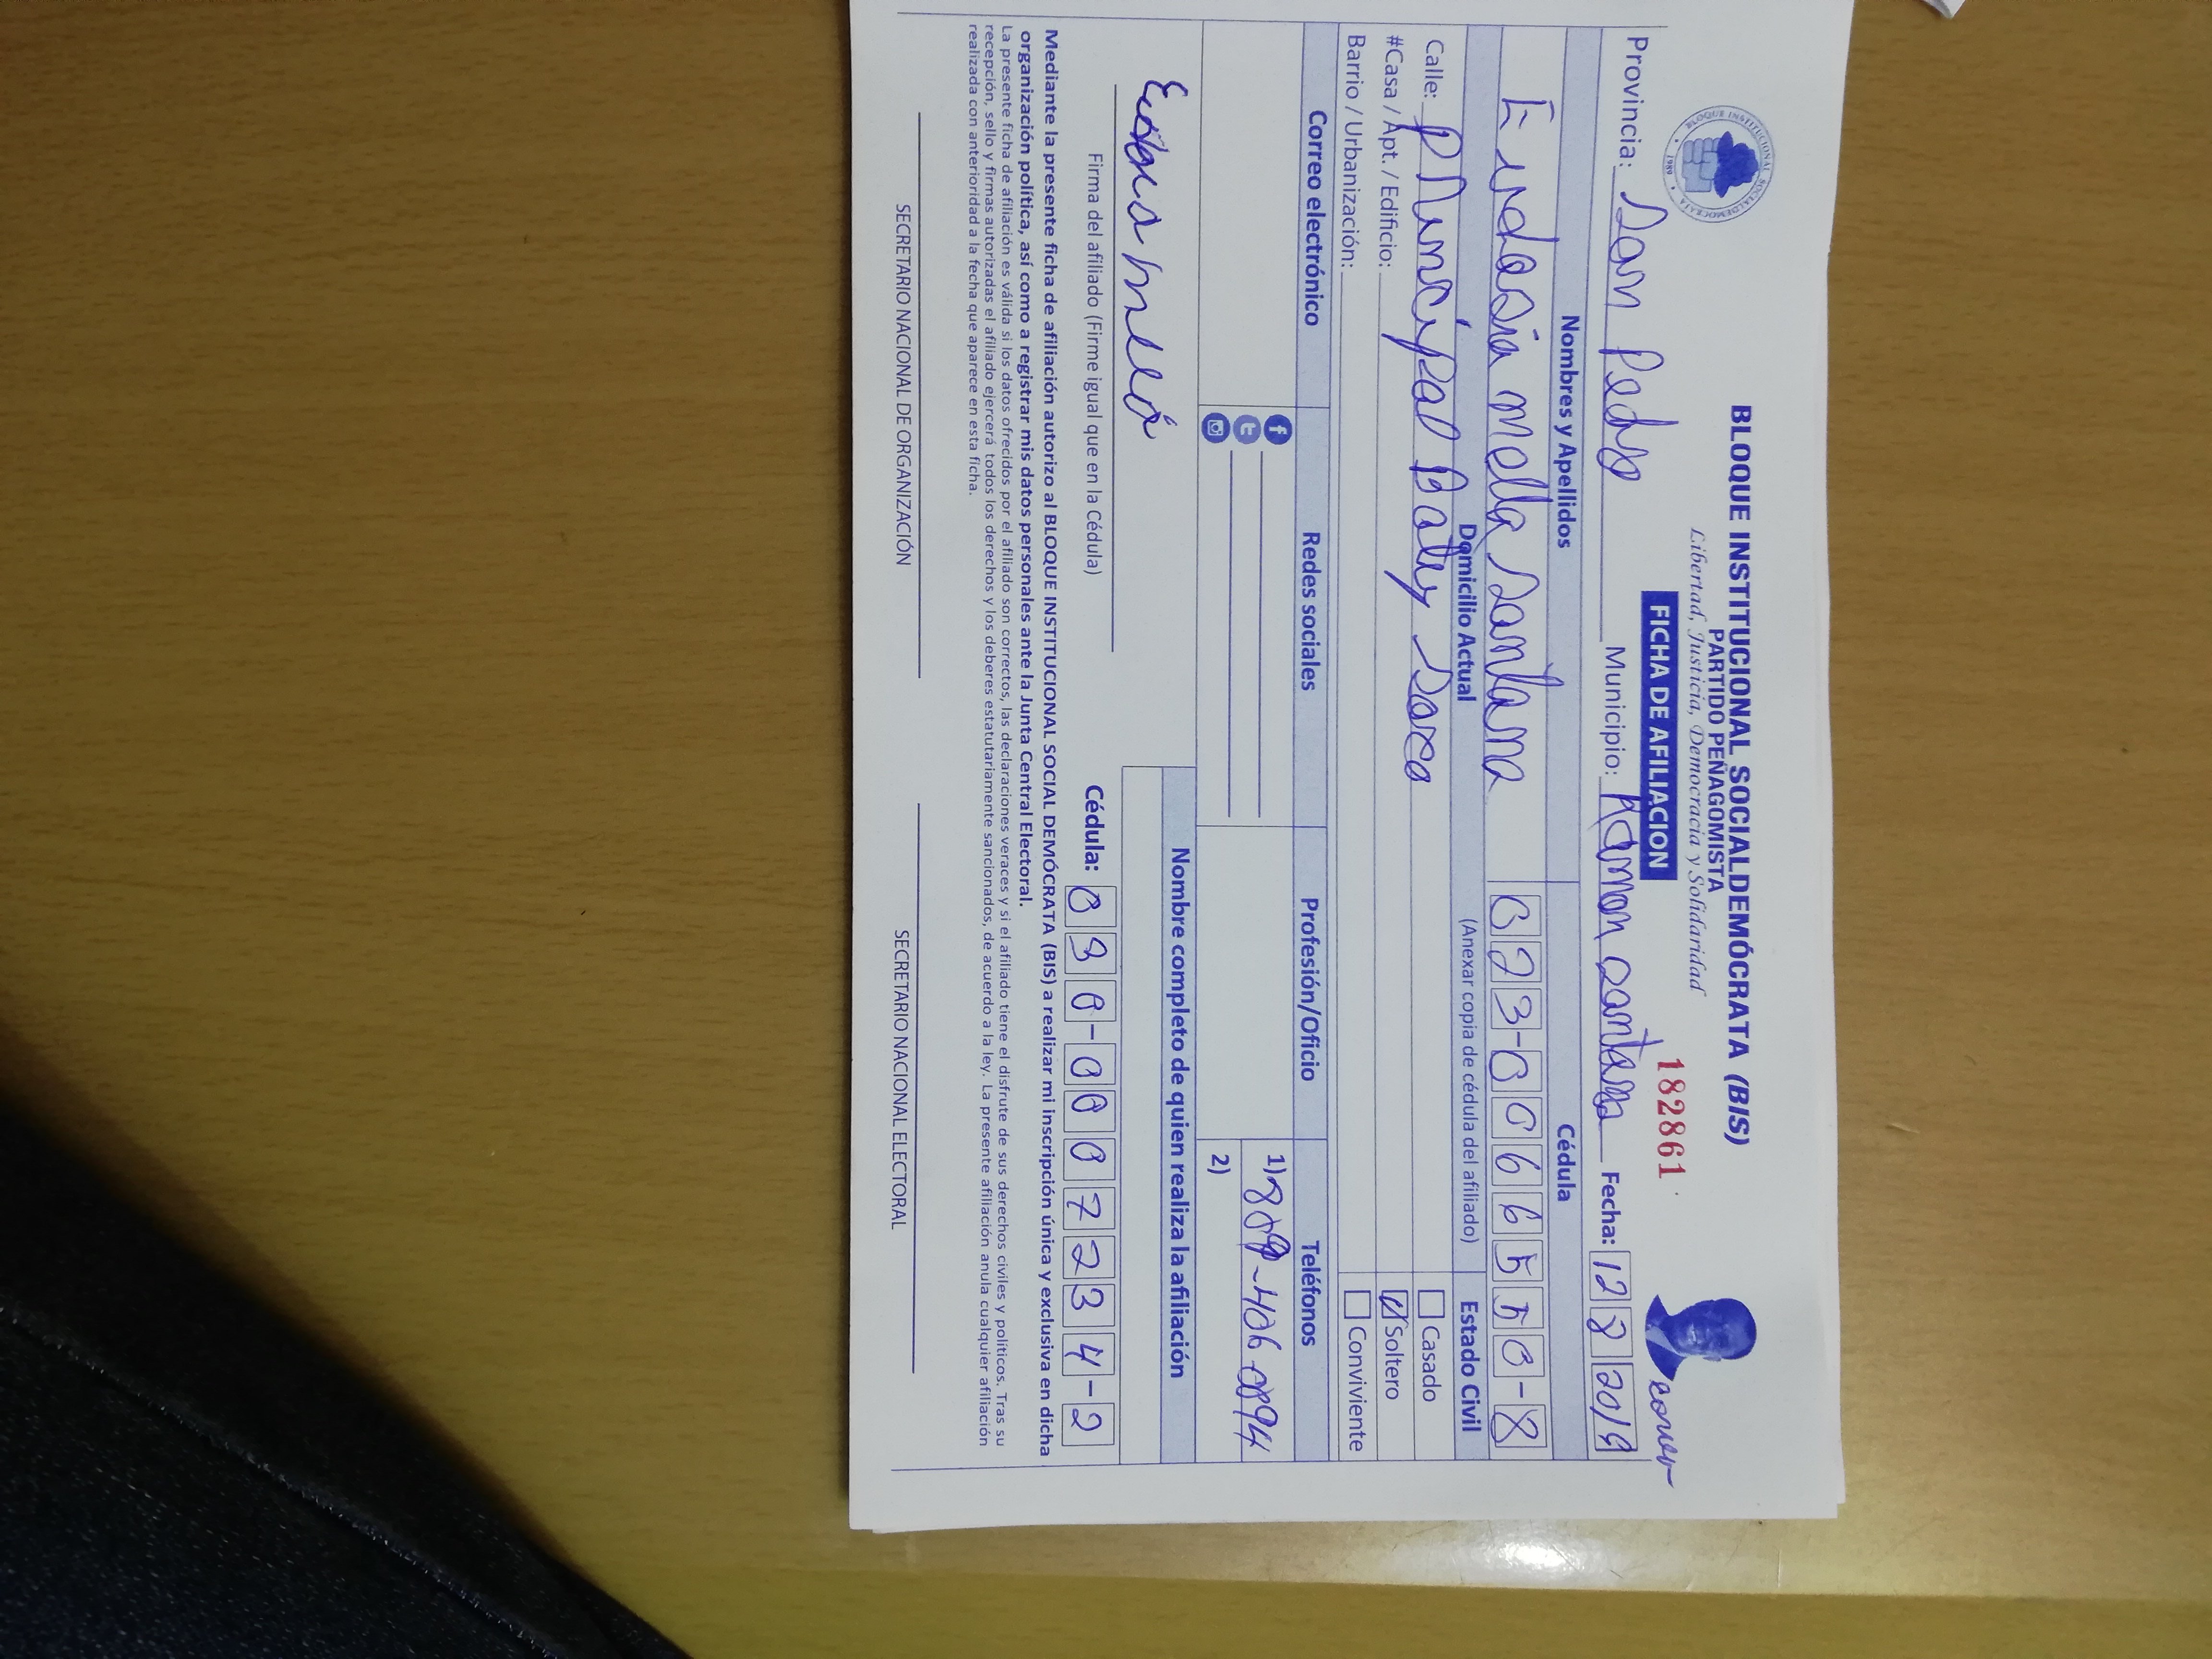 BLOQUE INSTITUCIONAL SOCIALDEMÓCRATA (BIS)
PARTIDO PEÑAGOMISTA
Libertad, Justicia, Democracia y Solidaridad
FICHA DE AFILIACION
182861
BLOQUE INSTITUCIONAL SOCIALDEMOCRATA
1989
Provincia: San Pedro Municipio: Ramon Santana Fecha: 12 8 2019
Nombres y Apellidos Cédula
Eudosia mella Santana 023-0066550-8
Domicilio Actual (Anexar copia de cédula del afiliado) Estado Civil
Calle: Principal Batey Soco Casado
#Casa / Apt. / Edificio: Soltero
Barrio / Urbanización: Conviviente
Correo electrónico Redes sociales Profesión/Oficio Teléfonos
1) 809-406-0894
2)
Nombre completo de quien realiza la afiliación
Firma del afiliado (Firme igual que en la Cédula) Cédula: 090-0007234-2
Mediante la presente ficha de afiliación autorizo al BLOQUE INSTITUCIONAL SOCIAL DEMÓCRATA (BIS) a realizar mi inscripción única y exclusiva en dicha
organización política, así como a registrar mis datos personales ante la Junta Central Electoral.
La presente ficha de afiliación es válida si los datos ofrecidos por el afiliado son correctos, las declaraciones veraces y si el afiliado tiene el disfrute de sus derechos civiles y políticos. Tras su
recepción, sello y firmas autorizadas el afiliado ejercerá todos los derechos y los deberes estatutariamente sancionados, de acuerdo a la ley. La presente afiliación anula cualquier afiliación
realizada con anterioridad a la fecha que aparece en esta ficha.
SECRETARIO NACIONAL DE ORGANIZACIÓN SECRETARIO NACIONAL ELECTORAL